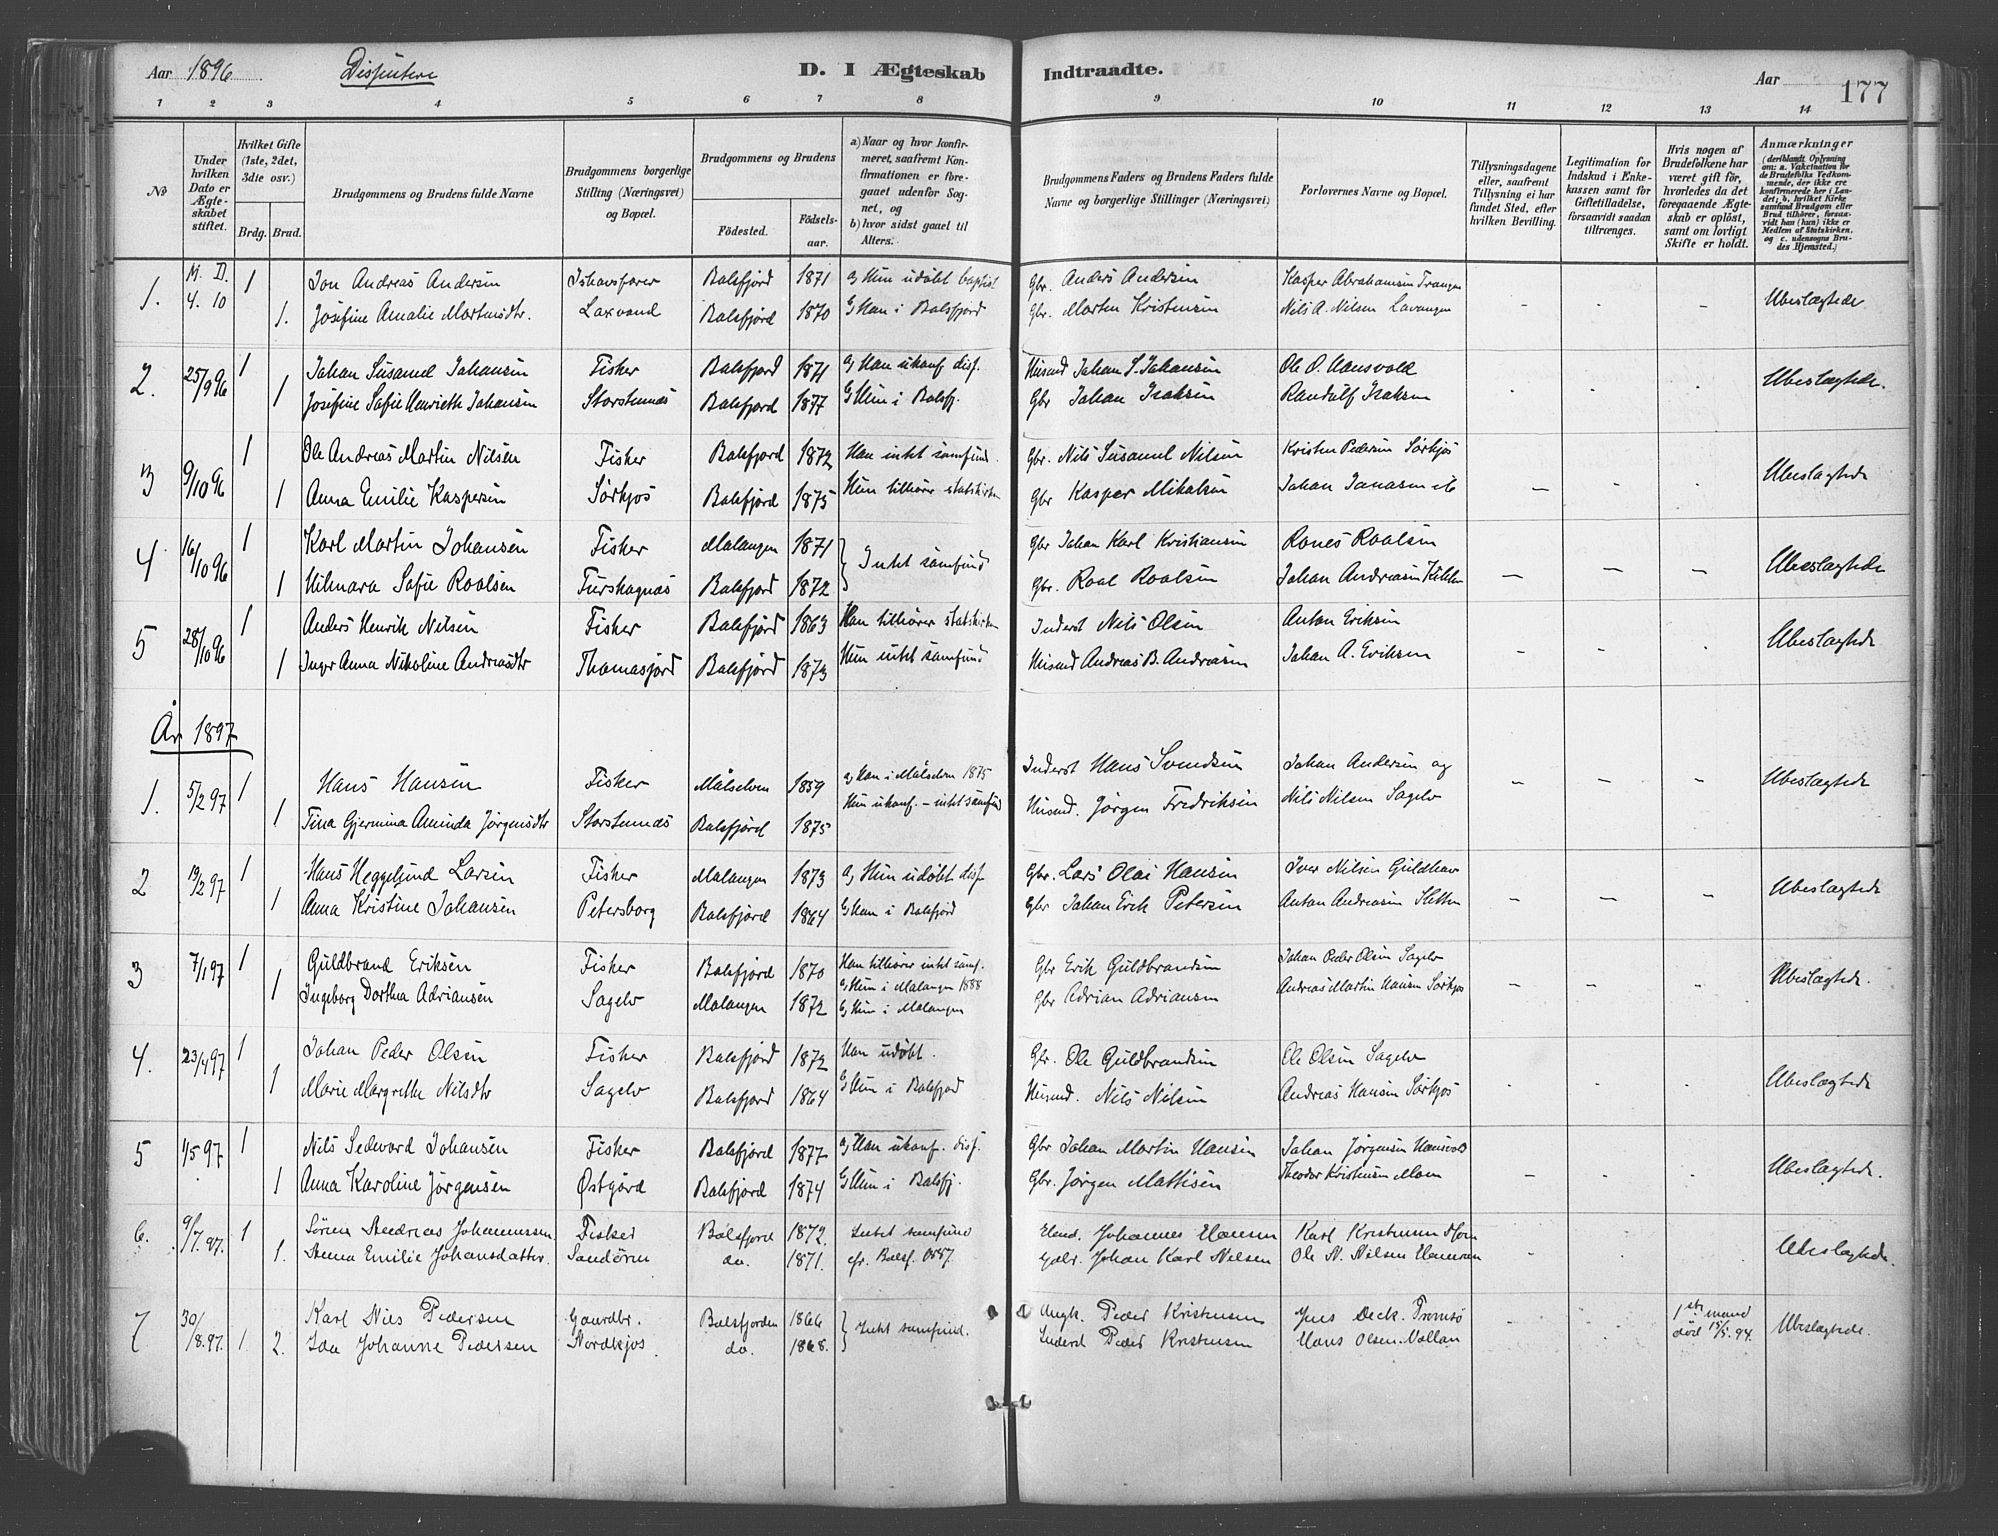 Aar 1896. Dissentere D. I Ægteskab Indtraadte. Aar 177
1 2 3 4 5 6 7 8 9 10 11 12 13 14
No
Under hvilken Dato er Ægteskabet stiftet.
Hvilket Gifte (1ste, 2det, 3die osv.)
Brdg. Brud.
Brudgommens og Brudens fulde Navne
Brudgommens borgerlige Stilling (Næringsvei) og Bopæl.
Brudgommens og Brudens
Fødested. Fødselsaar.
a) Naar og hvor konfirmeret, saafremt Konfirmationen er foregaaet udenfor Sognet, og
b) hvor sidst gaaet til Alters.
Brudgommens Faders og Brudens Faders fulde Navne og borgerlige Stillinger (Næringsvei)
Forlovernes Navne og Bopæl.
Tillysningsdagene eller, saafremt Tillysning ei har fundet Sted, efter hvilken Bevilling.
Legitimation for Indskud i Enkekassen samt for Giftetilladelse, forsaavidt saadan tiltrænges.
Hvis nogen af Brudefolkene har været gift før, hvorledes da det foregaaende Ægteskab er opløst, samt om lovligt Skifte er holdt.
Anmærkninger
(deriblandt Oplysning om: a. Vakcination for de Brudefolks Vedkommende, der ikke ere konfirmerede her i Landet; b. hvilket Kirkesamfund Brudgom eller Brud tilhører, forsaavidt han (hun) ikke er Medlem af Statskirken, og c. udensogns Brudes Hjemsted.)
1. M. D. 4. 10 1 Jon Andreas Andersen Ishavsfarer Balsfjord 1871 a) Hun udøbt baptist Gbr. Anders Andersen Kasper Abrahamsen Trangen
1. Josefine Amalie Mortensdtr. Laxvand Balsfjord 1870 b) Han i Balsfjord Gbr. Morten Kristensen Nils A. Nilsen Lavangen - - - Ubeslægtede
2. 25/9 96 1 Johan Susamel Johansen Fisker Balsfjord 1871 a) Han ukonf. diss. Husmd Johan S. Johansen Ole O. Hansvold
1 Josefine Sofie Henriette Johansen Storstennæs Balsfjord 1877 b) Hun i Balsfj. Gbr Johan Isaksen Randulf Isaksen Ubeslægtede.
3 9/10 96 1 Ole Andreas Martin Nilsen Fisker Balsfjord 1872 Han intet samfund. Gbr. Nils Susamel Nilsen Kristen Pedersen Sørkjos
1 Anna Emilie Kaspersen Sørkjos Balsfjord 1875 Hun tilhører statskirken Gbr Kasper Mikalsen Johan Jonasen - Ubeslægtede
4 16/10 96 1 Karl Martin Johansen Fisker Malangen 1871 } Intet samfund Gbr Johan Karl Kristiansen Rones Roalsen
1 Hilmara Sofie Roalsen Furskognæs Balsfjord 1872 Gbr. Roal Roalsen Johan Andreasen - - - Ubeslægtede
5 28/10 96 1 Anders Henrik Nilsen Fisker Balsfjord 1863 Han tilhører statskirken Inderst Nils Olsen Anton Eriksen
1 Inger Anna Nikoline Andreasdtr Thomasjord Balsfjord 1873 Hun intet samfund Husmd Andreas B. Andreasen Johan A. Eriksen - Ubeslægtede
År 1897
1. 5/2 97 1 Hans Hansen Fisker Målselven 1859 a) Han i Målselven 1875 Inderst Hans Svendsen Johan Andersen og
1 Tina Gjermina Aminda Jørgensdtr Storstennæs Balsfjord 1875 Hun ukonf. - intet samfund Husmd. Jørgen Fredriksen Nils Nilsen Sagelv - - - Ubeslægtede
2 19/2 97 1 Hans Heggelund Larsen Fisker Malangen 1873 a) Hun udøbt diss. Gbr. Lars Olai Hansen Iver Nilsen Guldhav
1 Anna Kristine Johansen Petersborg Balsfjord 1864 b) Han i Balsfjord Gbr Johan Erik Petersen Anton Andreasen Sletten - - - Ubeslægtede
3 7/1 97 1 Guldbrand Eriksen Fisker Balsfjord 1870 Han tilhører intet samf. Gbr Erik Guldbrandsen Johan Peder Olsen Sagelv
1 Ingeborg Dorthea Adriansen Sagelv Malangen 1872 a) Hun i Malangen 1888 b) Hun i Malangen Gbr Adrian Adriansen Andreas Martin Hansen Sørkjos - - - Ubeslægtede.
4. 23/4 97 1 Johan Peder Olsen Fisker Balsfjord 1872 Han udøbt. Gbr. Ole Guldbrandsen Ole Olsen Sagelv
1 Marie Margrethe Nilsdtr Sagelv Balsfjord 1864 b) Hun i Balsfjord Husmd. Nils Nilsen Andreas Hansen Sørkjos Ubeslægtede
5 1/5 97 1 Nils Sedvard Johansen Fisker Balsfjord 1877 a) Han ukonf. diss. Gbr Johan Martin Hansen Johan Jørgensen Hansvold
1 Anna Karoline Jørgensen Østgård Balsfjord 1874 b) Hun i Balsfj. Gbr. Jørgen Mattisen Theodor Kristensen Moen - Ubeslægtede.
6. 9/7. 97. 1 Søren Andreas Johannessen Fisker Balsfjord 1872. Intet samfund Johannes Hansen Karl Kristensen
1. Anna Emilie Johansdatter Sandøren do. 1871. cfr. Balsf. 1887. Gbr. Johan Karl Nilsen Ole N. Nilsen Ubeslægtede.
7 30/8.97. 1. Karl Nils Pedersen Gaardbr. Balsfjorden 1866 } Intet samfund. Peder Kristensen Jens Deck. Tromsø 1ste mand
2. Ida Johanne Pedersen Nordkjos do. 1868. Inderst Peder Kristensen Hans Olsen Vollan død 15/5. 94. Ubeslægtede.